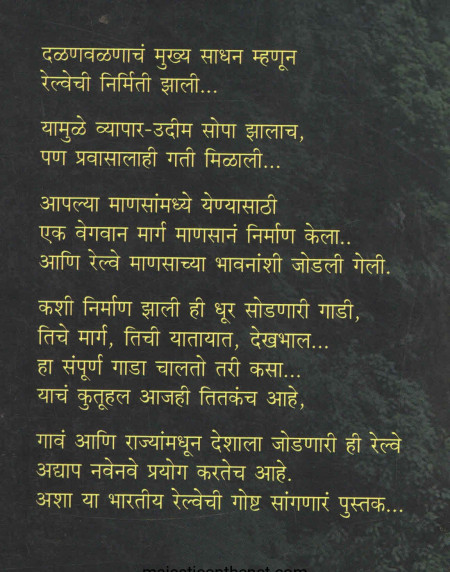 दळणवळणाचं मुख्य साधन म्हणून
रेल्वेची निर्मिती झाली...
यामुळे व्यापार-उदीम सोपा झालाच,
पण प्रवासालाही गती मिळाली...
आपल्या माणसांमध्ये येण्यासाठी
एक वेगवान मार्ग माणसानं निर्माण केला..
आणि रेल्वे माणसाच्या भावनांशी जोडली गेली.
कशी निर्माण झाली ही धूर सोडणारी गाडी,
तिचे मार्ग, तिची यातायात, देखभाल...
हा संपूर्ण गाडा चालतो तरी कसा...
याचं कुतूहल आजही तितकंच आहे,
गावं आणि राज्यांमधून देशाला जोडणारी ही रेल्वे
अद्याप नवेनवे प्रयोग करतेच आहे.
अशा या भारतीय रेल्वेची गोष्ट सांगणारं पुस्तक...